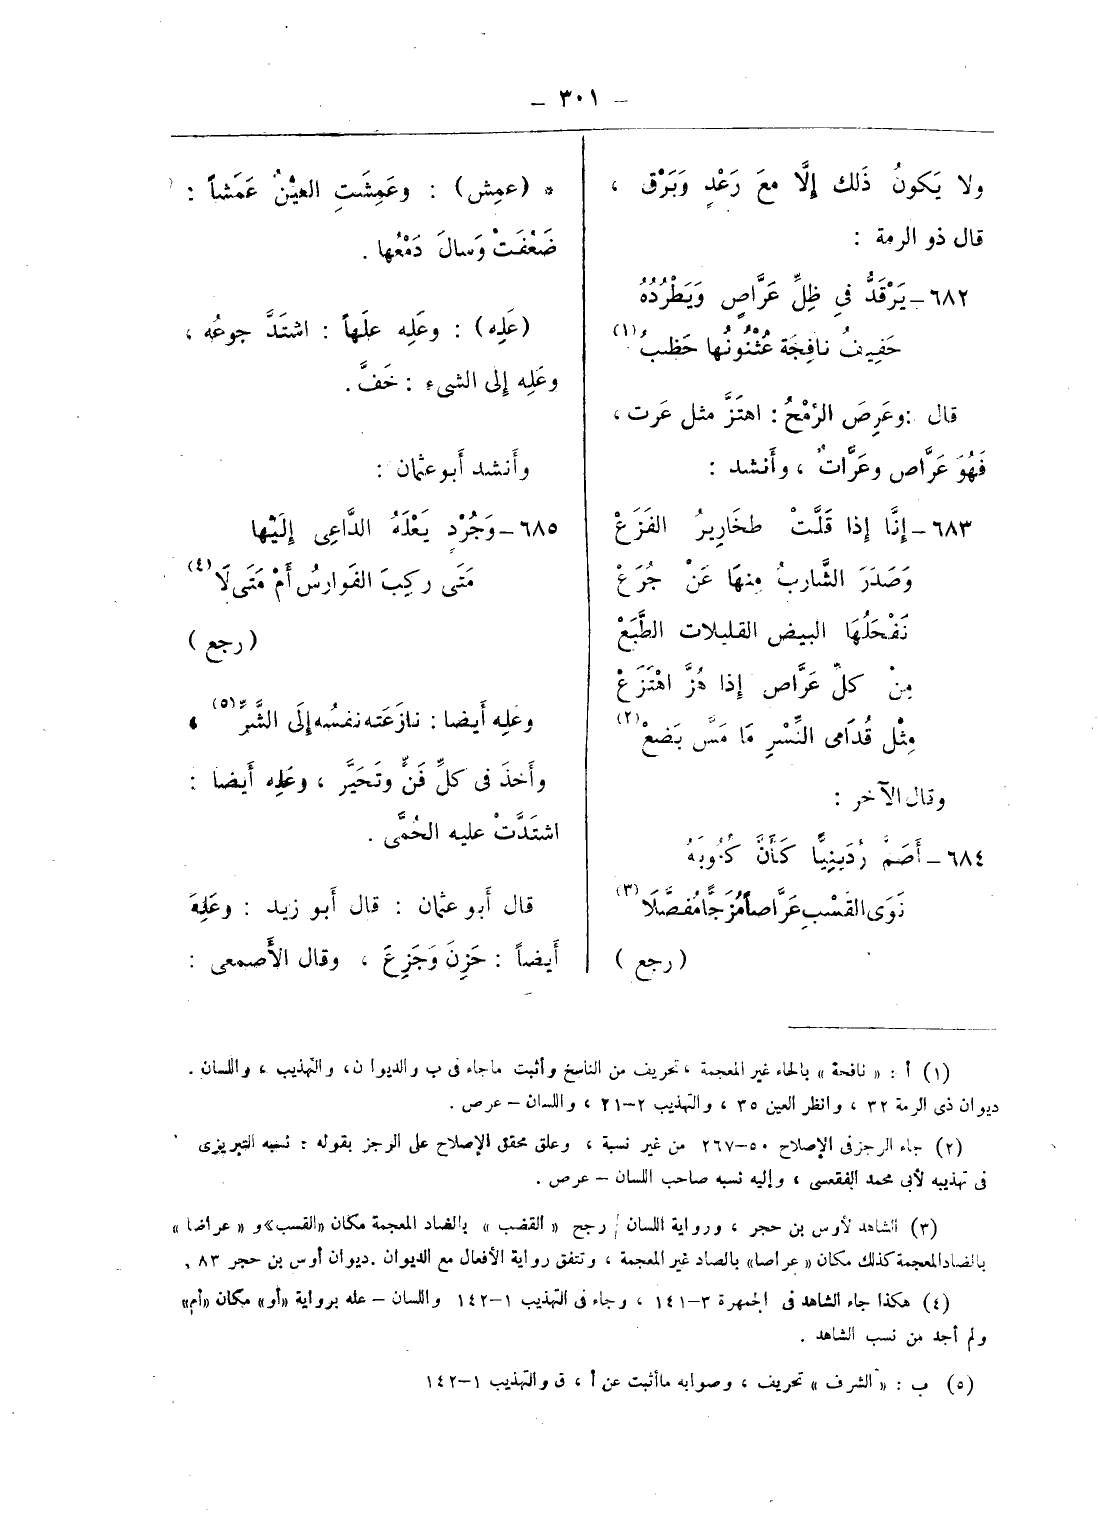 – ٣٠١ –
ولا يَكونُ ذَلك إلَّا معَ رَعْدٍ وَبَرْق ،
قال ذو الرمة :
٦٨٢ – يَرْقَدُّ في ظِلِّ عَرَّاصٍ وَيَطْرُدُهُ
حَفِيفُ نافِجَة عُثْنُونُها حَظبُ (١)
قال : وعَرِصَ الرُمْحُ : اهتَزَّ مثل عَرت ،
فَهُوَ عَرَّاص وعَرَّاتٌ ، وأَنشد :
٦٨٣ – إنَّا إذا قَلَّتْ طخَارِيرُ القَزَعْ
وَصَدَرَ الشَّاربُ مِنهَا عَنْ جُرَعْ
نَفْحَلُهَا البيض القليلات الطَّبَعْ
مِنْ كلِّ عَرَّاص إذا هُزَّ اهْتَزَعْ
مِثْل قُدَامى النِّسْرِ مَا مَسَّ بَضعْ (٢)
وقال الآخر :
٦٨٤ – أَصَمَّ رُدَينِيًّا كَأَنَّ كُعُوبَهُ
نَوَى القَسْبِ عَرَّاصاً مُزَجًّا مُفصَّلَا (٣)
( رجع )
* (عمِش) : وعَمِشَتِ العيْنُ عَمَشاً :
ضَعُفَتْ وَسالَ دَمْعُها .
(عَلِه) : وعَلِه علَهاً : اشتَدَّ جوعُه ،
وعَلِه إلى الشىء : خَفَّ .
وأَنشد أَبو عثمان :
٦٨٥ – وَجُرْدٍ يَعْلَهُ الدَّاعِى إلَيْها
مَتَى ركِبَ الفَوارسُ أَمْ مَتَى لَا (٤)
( رجع )
وعَلِه أَيضا : نازَعَته نفسُه إلَى الشَّرِّ (٥) ،
وأَخذَ فى كلِّ فَنٍّ وتَحَيَّر ، وعَلِه أَيضا :
اشتَدَّتْ عليه الحُمَّى .
قال أَبو عثمان : قال أَبو زيد : وعَلِهَ
أَيضاً : حَزِنَ وَجَزِعَ ، وقال الأَصمعى :
(١) أ : « نافحة » بالحاء غير المعجمة ، تحريف من الناسخ وأثبت ماجاء فى ب والديوان ، والتهذيب ، واللسان .
ديوان ذى الرمة ٣٢ ، وانظر العين ٣٥ ، والتهذيب ٢–٢١ ، واللسان – عرص .
(٢) جاء الرجز فى الإصلاح ٥٠–٢٦٧ من غير نسبة ، وعلق محقق الإصلاح على الرجز بقوله : نسبه التبريزى
فى تهذيبه لأبى محمد الفقعسى ، وإليه نسبه صاحب اللسان – عرص .
(٣) الشاهد لأوس بن حجر ، ورواية اللسان / رجح « القضب » بالضاد المعجمة مكان «القسب» و « عراضا »
بالضاد المعجمة كذلك مكان « عراصا» بالصاد غير المعجمة ، وتتفق رواية الأفعال مع الديوان . ديوان أوس بن حجر ٨٣ .
(٤) هكذا جاء الشاهد فى الجمهرة ٣–١٤١ ، وجاء فى التهذيب ١–١٤٢ واللسان – عله برواية «أو» مكان «أم»
ولم أجد من نسب الشاهد .
(٥) ب : « الشرف » تحريف ، وصوابه ما أثبت عن أ ، ق والتهذيب ١–١٤٢